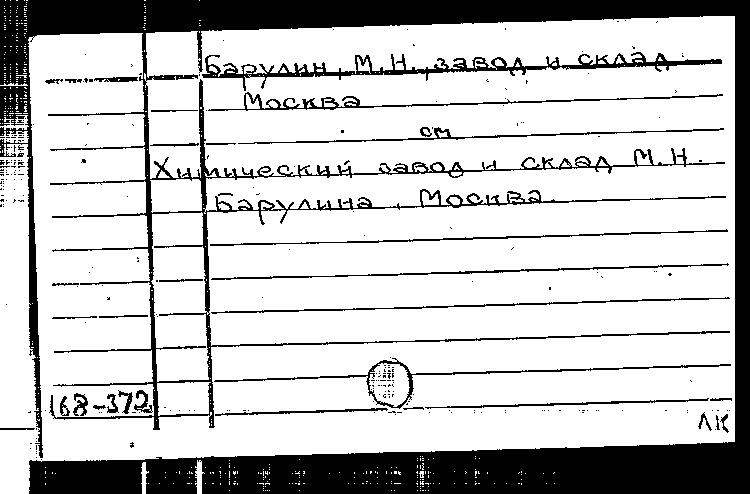 Барулин, М.Н., завод и склад
Москва
см
Химический завод и склад М.Н.
Барулина, Москва.
168-372
ЛК